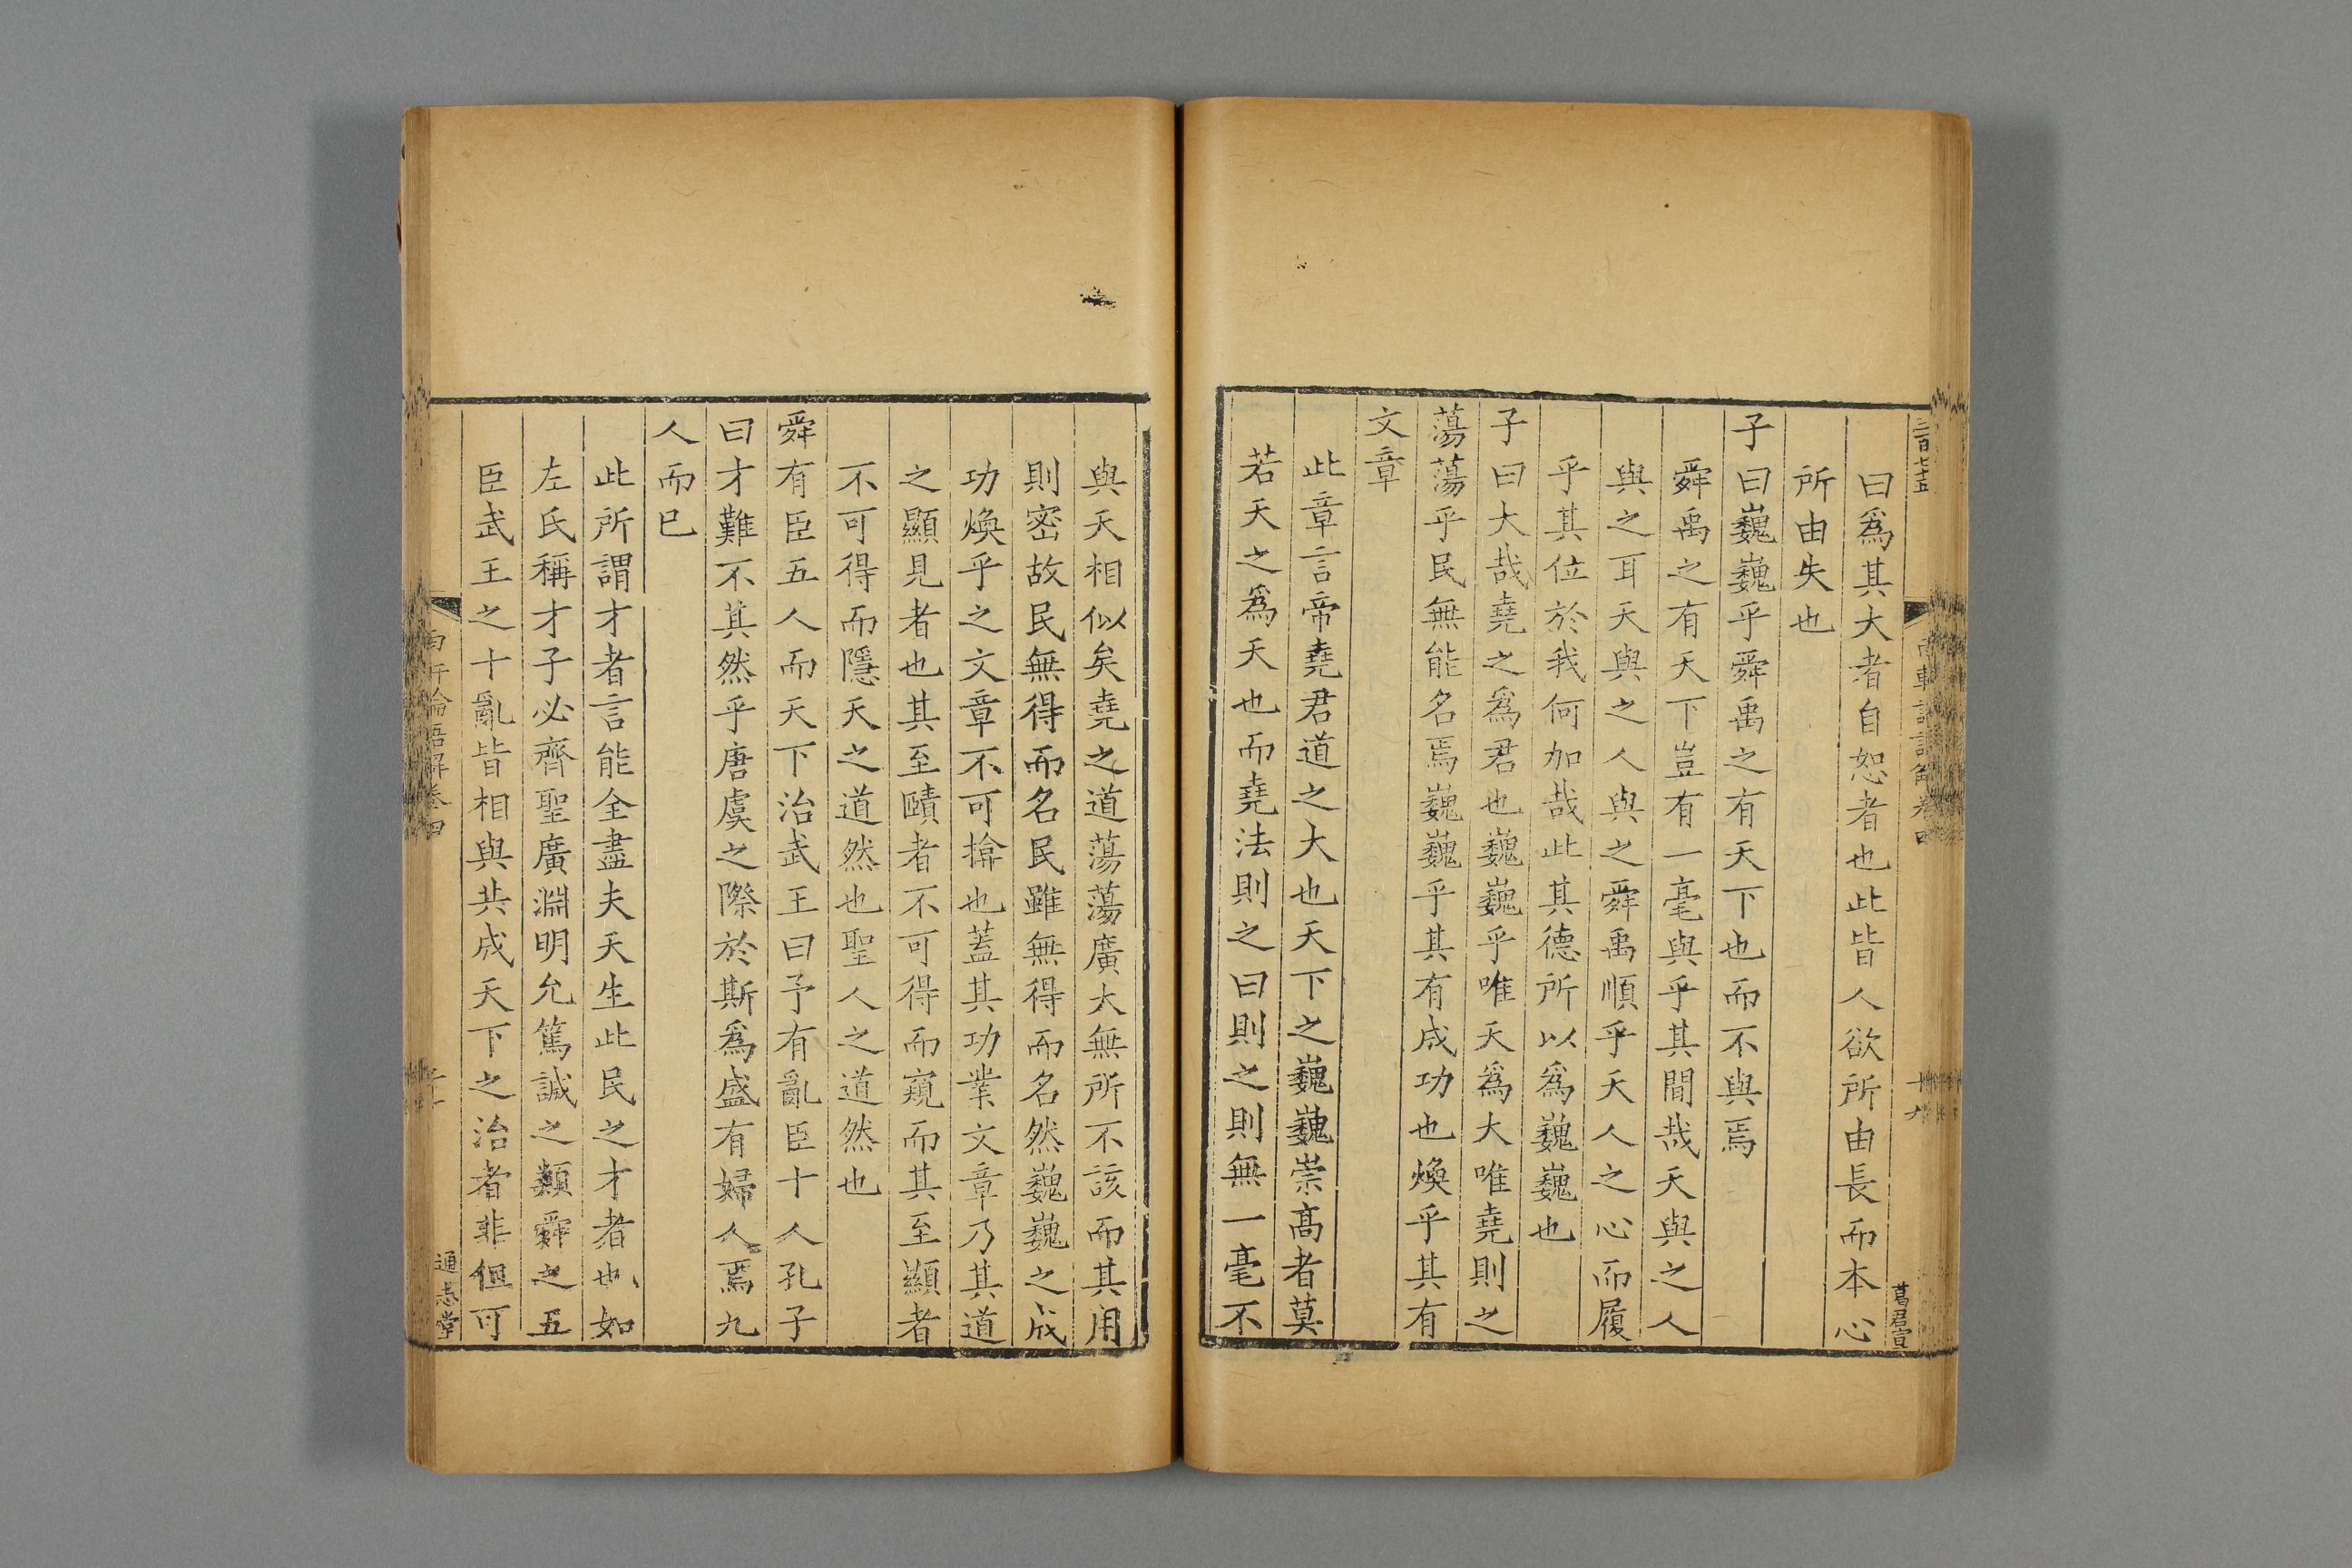 三百七十五
南軒論語解卷四
十九
葛君宣
曰爲其大者自恕者也此皆人欲所由長而本心
所由失也
子曰巍巍乎舜禹之有天下也而不與焉
舜禹之有天下豈有一毫與乎其間哉天與之人
與之耳天與之人與之舜禹順乎天人之心而履
乎其位於我何加哉此其德所以爲巍巍也
子曰大哉堯之爲君也巍巍乎唯天爲大唯堯則之
蕩蕩乎民無能名焉巍巍乎其有成功也煥乎其有
文章
此章言帝堯君道之大也天下之巍巍崇高者莫
若天之爲天也而堯法則之曰則之則無一毫不
與天相似矣堯之道蕩蕩廣大無所不該而其用
則密故民無得而名民雖無得而名然巍巍之成
功煥乎之文章不可揜也蓋其功業文章乃其道
之顯見者也其至賾者不可得而窺而其至顯者
不可得而隱天之道然也聖人之道然也
舜有臣五人而天下治武王曰予有亂臣十人孔子
曰才難不其然乎唐虞之際於斯爲盛有婦人焉九
人而已
此所謂才者言能全盡夫天生此民之才者也如
左氏稱才子必齊聖廣淵明允篤誠之類舜之五
臣武王之十亂皆相與共成天下之治者非但可
南軒論語解卷四
通志堂